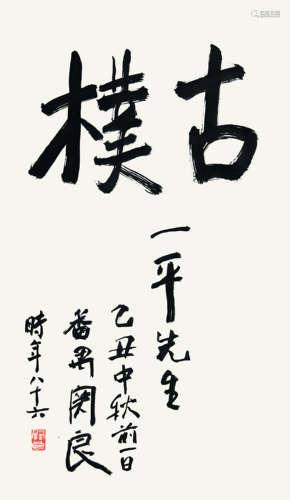 古樸
一平先生
乙丑中秋前一日
番禺関良
時年八十六